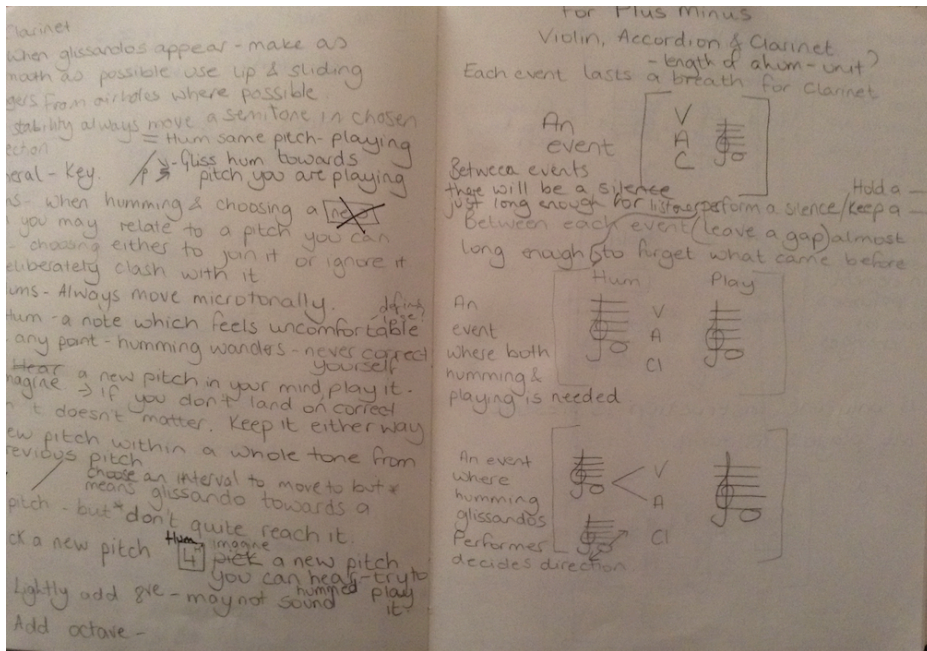 Clarinet
When glissandos appear - make as
as possible use lip & sliding
from airholes where possible.
stability always move a semitone in chosen
= Hum same pitch - playing
Key.
- Gliss hum towards
pitch you are playing
- when humming & choosing a
you may relate to a pitch you can
- choosing either to join it or ignore it
deliberately clash with it
Hums - Always move microtonally.
define
Hum - a note which feels uncomfortable
any point - humming wanders - never correct
yourself
Hear a new pitch in your mind, play it.
Imagine → if you don't land on correct
it doesn't matter. Keep it either way
new pitch within a whole tone from
previous pitch
choose an interval to move to but *
means glissando towards a
pitch - but * don't quite reach it.
Pick a new pitch
Hum
4
imagine
pick a new pitch
you can hear - try to
play
it.
Lightly add 8ve - may not sound
hummed
Add octave -
For Plus Minus
Violin, Accordion & Clarinet
- length of a hum - unit?
Each event lasts a breath for Clarinet
An
event
V
A
C
Between events
there will be a silence
just long enough for listener
perform a silence / keep a -
Hold a -
Between each event (leave a gap) almost
long enough to forget what came before
Hum Play
An
event
where both
humming &
playing is needed
V
A
Cl
An event
where
humming
glissandos
Performer
decides direction
V
A
Cl